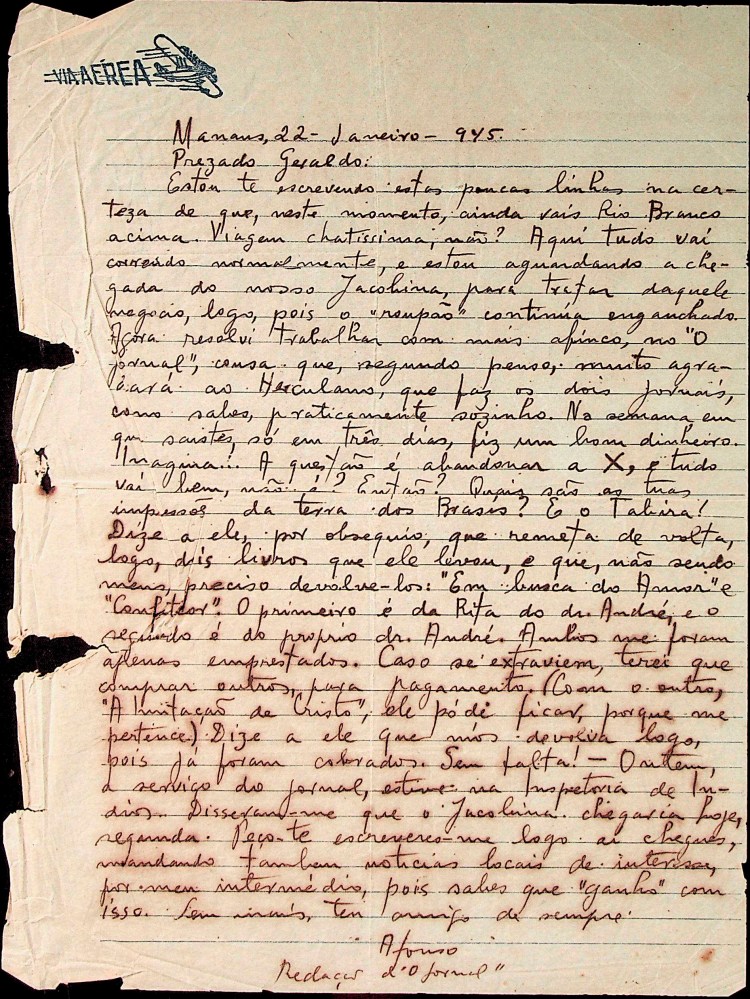 VIA AÉREA
Manaus, 22 - Janeiro - 945.
Prezado Geraldo:
Estou te escrevendo estas poucas linhas na cer-
teza de que, neste momento, ainda vais Rio Branco
acima. Viagem chatissima, não? Aqui tudo vai
correndo normalmente, e estou aguardando a che-
gada do nosso Jacobina, para tratar daquele
negocio, logo, pois o "roupão" continúa enganchado.
Agora resolvi trabalhar com mais afinco, no "O
jornal", cousa que, segundo penso, muito agra-
dará ao Herculano, que faz os dois jornais,
como sabes, praticamente sozinho. Na semana em
que saistes, só em três dias, fiz um bom dinheiro.
Imagina!.. A questão é abandonar a X, e tudo
vai bem, não é? Então? Quais são as tuas
impressões da terra dos Brasis? E o Tabira!
Dize a ele, por obsequio, que remeta de volta,
logo, dois livros que ele levou, e que, não sendo
meus, preciso devolve-los: "Em busca do Amor" e
"Confiteor". O primeiro é da Rita do dr. André, e o
segundo é do proprio dr. André. Ambos me foram
apenas emprestados. Caso se extraviem, terei que
comprar outros, para pagamento. (Com o outro,
"A Imitação de Cristo", ele póde ficar, porque me
pertence.) Dize a ele que nos devolva logo,
pois já foram cobrados. Sem falta! — Ontem,
a serviço do jornal, estive na Inspetoria de In-
dios. Disseram-me que o Jacobina chegaria hoje,
segunda. Peço-te escreveres-me logo ai chegues,
mandando tambem noticias locais de interesse,
por meu intermédio, pois sabes que "ganho" com
isso. Sem mais, teu amigo de sempre
Afonso
Redação d'"O Jornal"